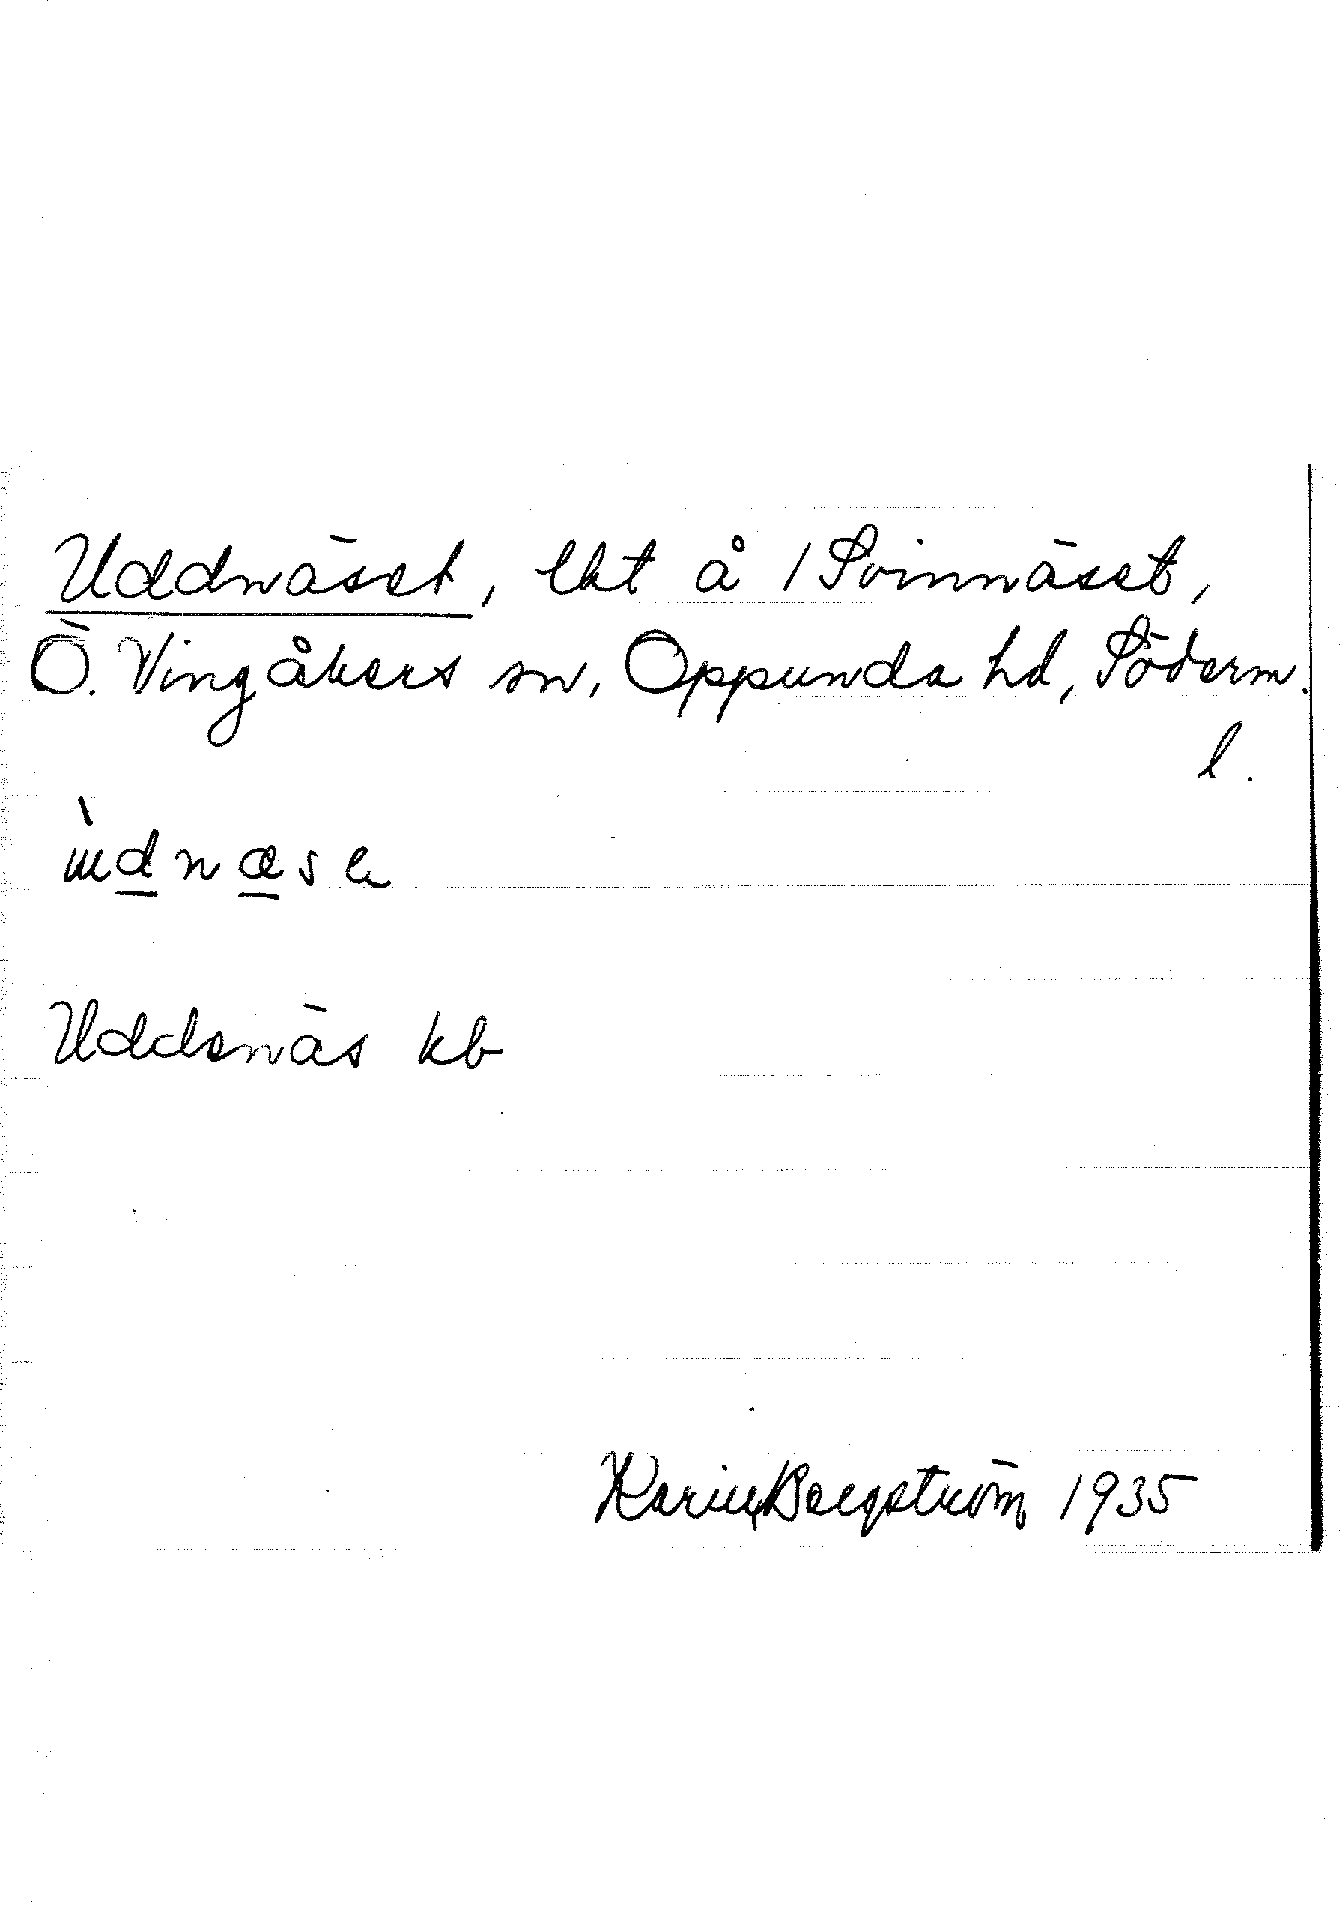 Uddnäset, lkt å 1 Svinnäset,
Ö. Vingåkers sn, Oppunda hd, Söderm.
l.
Uddsnäs kb
Karin Bergström 1935